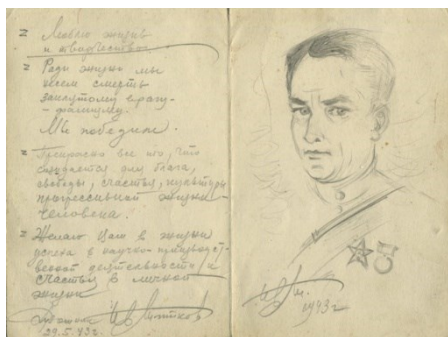 Люблю жизнь
и творчество.
Ради жизни мы
несем смерть
заклятому врагу -
- фашизму.
Мы победим.
Прекрасно все то, что
создается для блага,
свободы, счастья, культуры
прогрессивной жизни
человека.
Желаю Вам в жизни
успеха в научно-производст-
венной деятельности и
счастья в личной
жизни
29.5.43г.
1943г